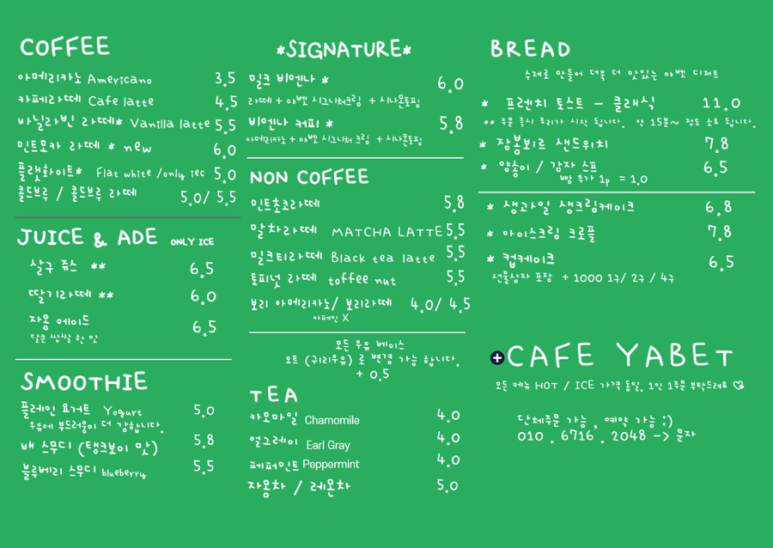 COFFEE
아메리카노 Americano 3.5
카페라떼 Cafe latte 4.5
바닐라빈 라떼* Vanilla latte 5.5
민트모카 라떼 * new 6.0
플랫화이트* Flat white /only ice 5.0
콜드브루 / 콜드브루 라떼 5.0/ 5.5
JUICE & ADE ONLY ICE
살구 쥬스 ** 6.5
딸기라떼 ** 6.0
자몽 에이드 6.5
달콤 쌉쌀 한 맛
SMOOTHIE
플레인 요거트 Yogurt 5.0
우유에 부드러움이 더 강합니다.
배 스무디 (탱크보이 맛) 5.8
블루베리 스무디 blueberry 5.5
*SIGNATURE*
밀크 비엔나 * 6.0
라떼 + 야벳 시그니처크림 + 시나몬토핑
비엔나 커피 * 5.8
아메리카노 + 야벳 시그니처 크림 + 시나몬토핑
NON COFFEE
민트초코라떼 5.8
말차라떼 MATCHA LATTE 5.5
밀크티라떼 Black tea latte 5.5
토피넛 라떼 toffee nut 5.5
보리 아메리카노/ 보리라떼 4.0/ 4.5
카페인 X
모든 우유 베이스
오트 (귀리우유) 로 변경 가능 합니다.
+ 0.5
TEA
카모마일 Chamomile 4.0
얼그레이 Earl Gray 4.0
페퍼민트 Peppermint 4.0
자몽차 / 레몬차 5.0
BREAD
수제로 만들어 더욱 더 맛있는 야벳 디저트
* 프렌치 토스트 - 클래식 11.0
** 주문 즉시 조리가 시작 됩니다. 약 15분~ 정도 소요 됩니다.
* 잠봉뵈르 샌드위치 7.8
* 양송이 / 감자 스프 6.5
빵 추가 1p = 1.0
* 생과일 생크림케이크 6.8
* 아이스크림 크로플 7.8
* 컵케이크 6.5
선물상자 포장 + 1000 1구/ 2구 / 4구
CAFE YABET
모든 메뉴 HOT / ICE 가격 동일. 1인 1주문 부탁드려요 ♡
단체주문 가능, 예약 가능 :)
010 . 6716 . 2048 -> 문자